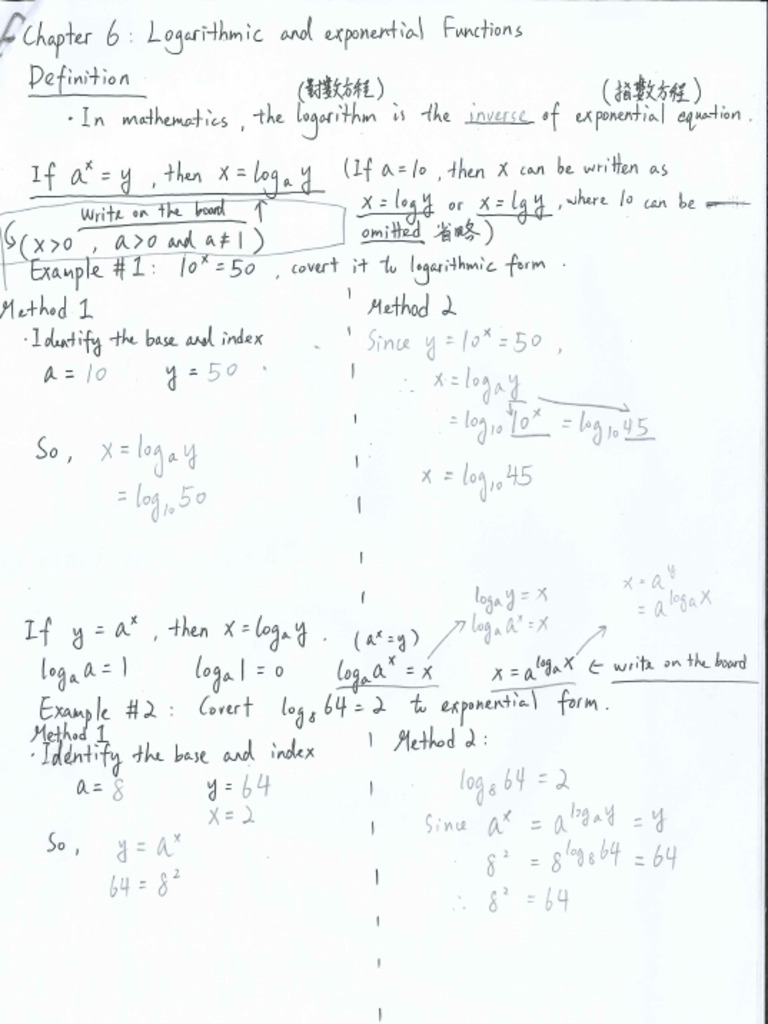 Chapter 6 : Logarithmic and exponential Functions
Definition
(對數方程) (指數方程)
· In mathematics, the logarithm is the inverse of exponential equation.
If aˣ = y , then x = logₐ y (If a = 10 , then x can be written as
x = log y or x = lg y , where 10 can be
omitted 省略)
Write on the board ↑
(x>0 , a>0 and a≠1)
Example #1 : 10ˣ = 50 , covert it to logarithmic form .
Method 1
· Identify the base and index
a = 10 y = 50 .
So, x = logₐ y
= log₁₀ 50
Method 2
Since y = 10ˣ = 50 ,
∴ x = logₐ y
= log₁₀ 10ˣ = log₁₀ 45
x = log₁₀ 45
logₐ y = x
logₐ aˣ = x
x = a^y
= a^(logₐ x)
If y = aˣ , then x = logₐ y . (aˣ = y)
logₐ a = 1 logₐ 1 = 0 logₐ aˣ = x x = a^(logₐ x) ← write on the board
Example #2 : Covert log₈ 64 = 2 to exponential form .
Method 1
· Identify the base and index
a = 8 y = 64
x = 2
So, y = aˣ
64 = 8²
Method 2 :
log₈ 64 = 2
Since aˣ = a^(logₐ y) = y
8² = 8^(log₈ 64) = 64
∴ 8² = 64